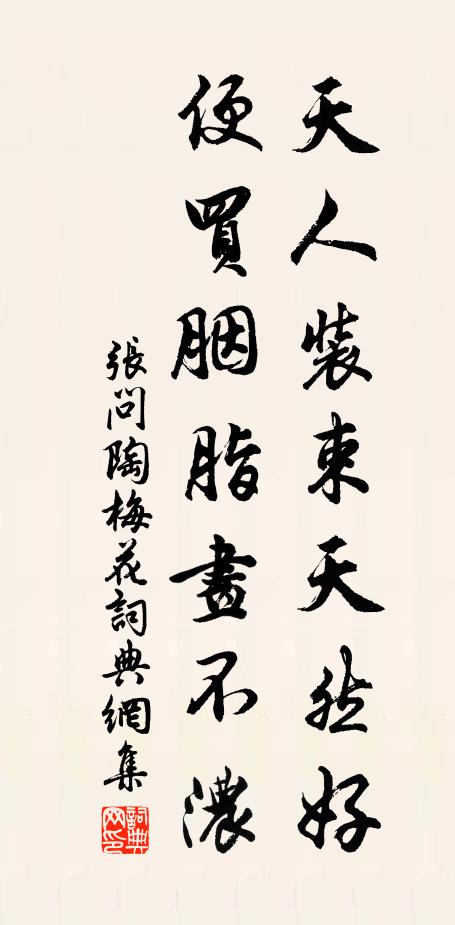 天人裝束天然好
便買胭脂畫不濃
張問陶梅花詞典網集
詞典網印